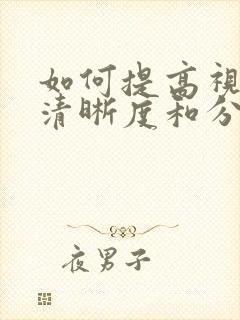 如何提高視
清晰度和分
夜男子